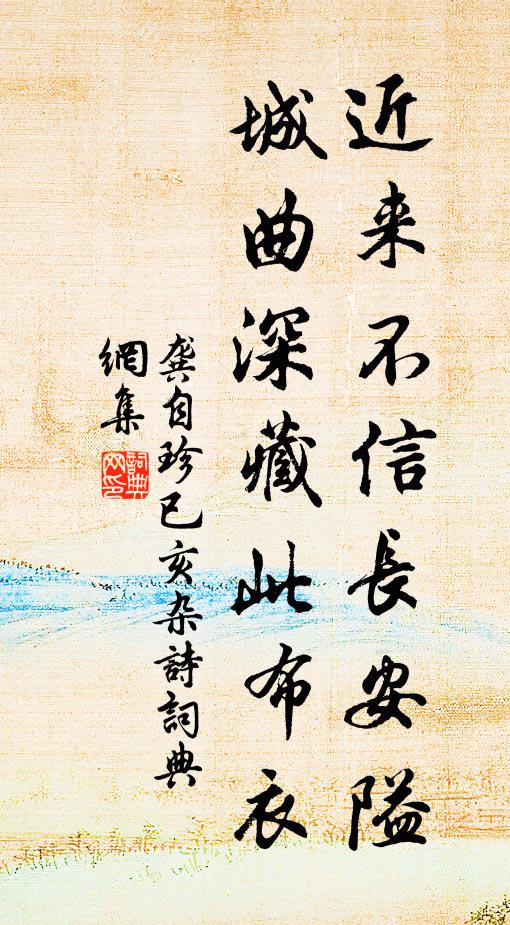 近来不信長安隘
城曲深藏此布衣
龚自珍己亥杂詩詞典
網集
詞典
网印